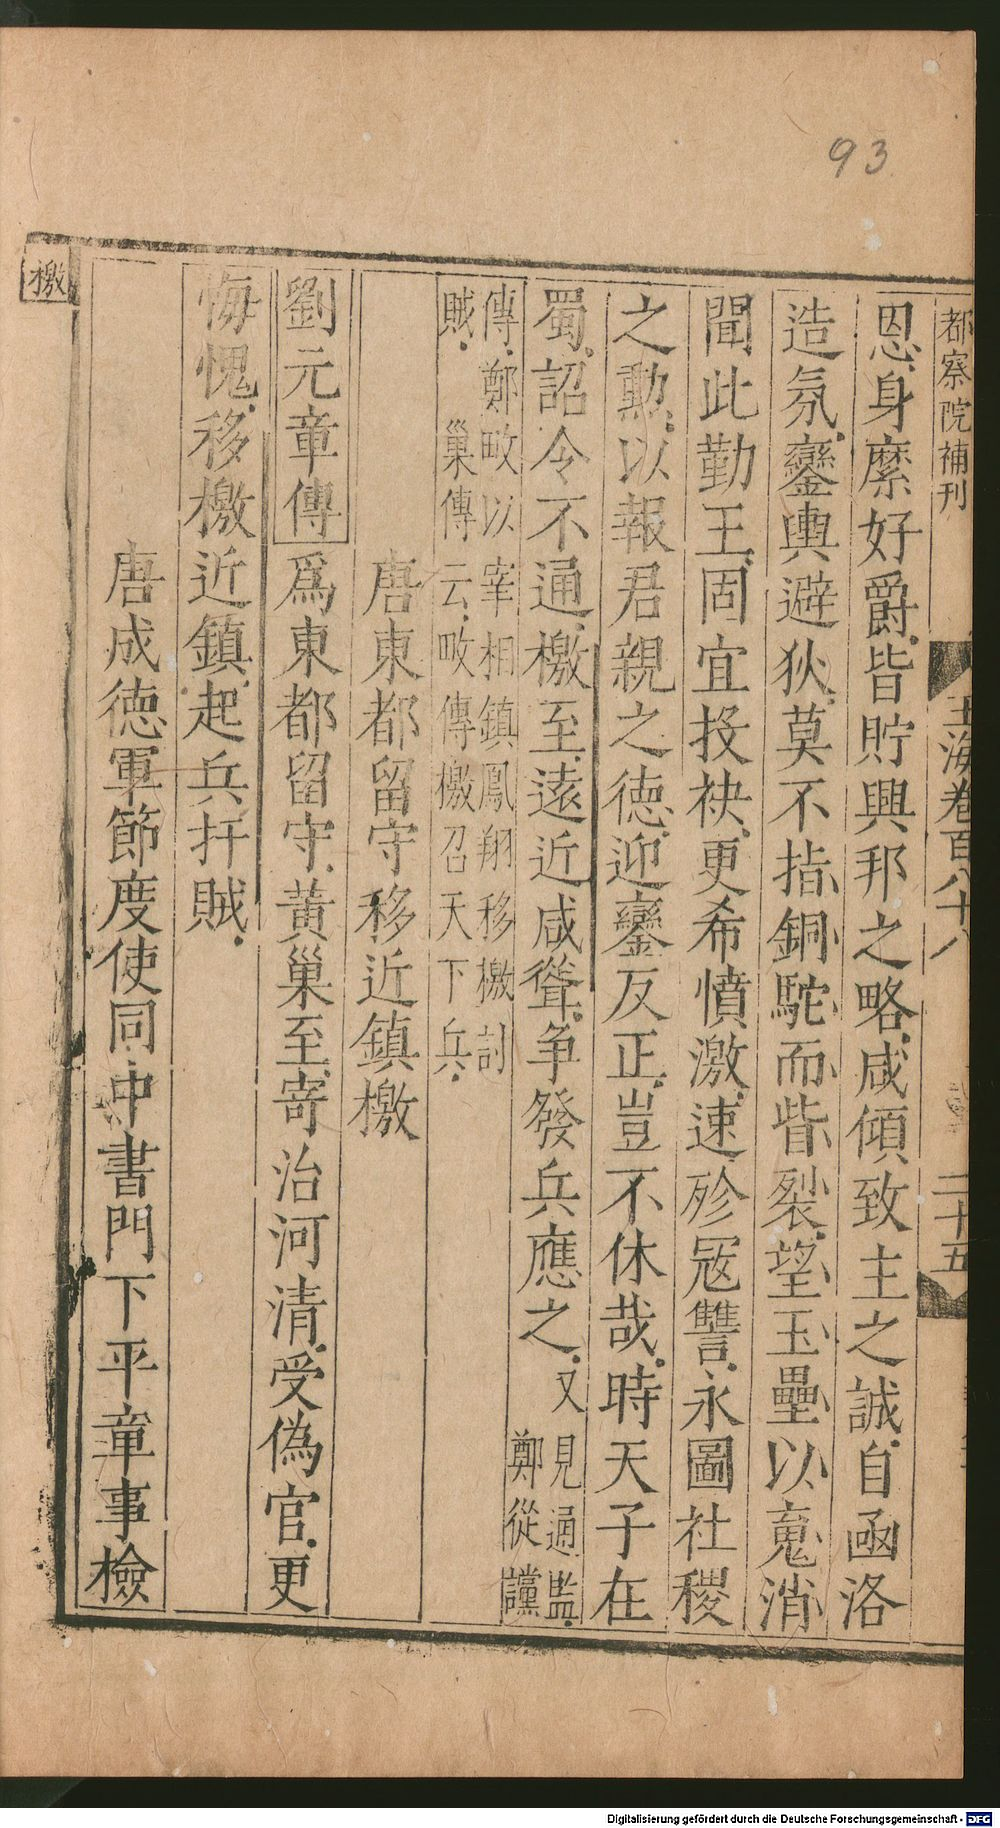 93
都察院補刊
玉海卷百八十八
二十五
恩身縻好爵皆貯興邦之略咸傾致主之誠自函洛
造氛鑾輿避狄莫不指銅駝而眥裂望玉壘以䰟消
聞此勤王固宜投袂更希憤激速殄寇讐永圖社稷
之勳以報君親之德迎鑾反正豈不休哉時天子在
蜀詔令不通檄至遠近咸聳争發兵應之又見通監鄭從讜
傳鄭畋以宰相鎮鳳翔移檄討
賊 巢傳云畋傳檄召天下兵
唐東都留守移近鎮檄
劉元章傳爲東都留守黄巢至寄治河清受偽官更
悔愧移檄近鎮起兵扞賊
唐成德軍節度使同中書門下平章事檢
檄
Digitalisierung gefördert durch die Deutsche Forschungsgemeinschaft - DFG